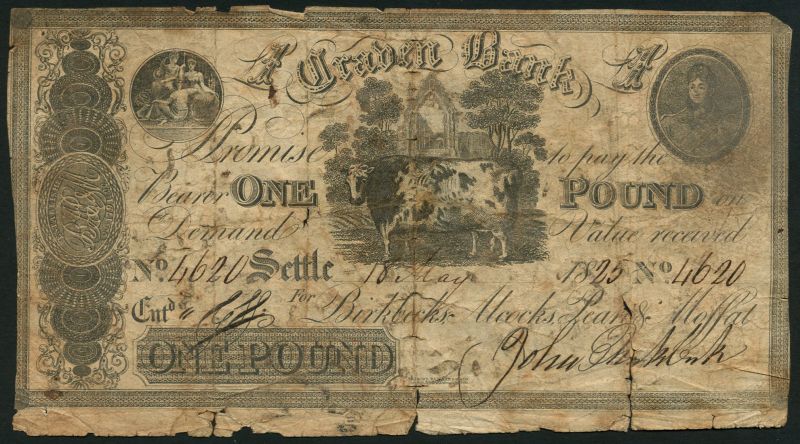 A Craven Bank A
Promise to pay the
Bearer ONE POUND on
Demand Value received
No. 4620 Settle 18 May 1825 No. 4620
Entd. For Birkbecks Alcocks Pears & Moffat
ONE POUND John Birkbeck